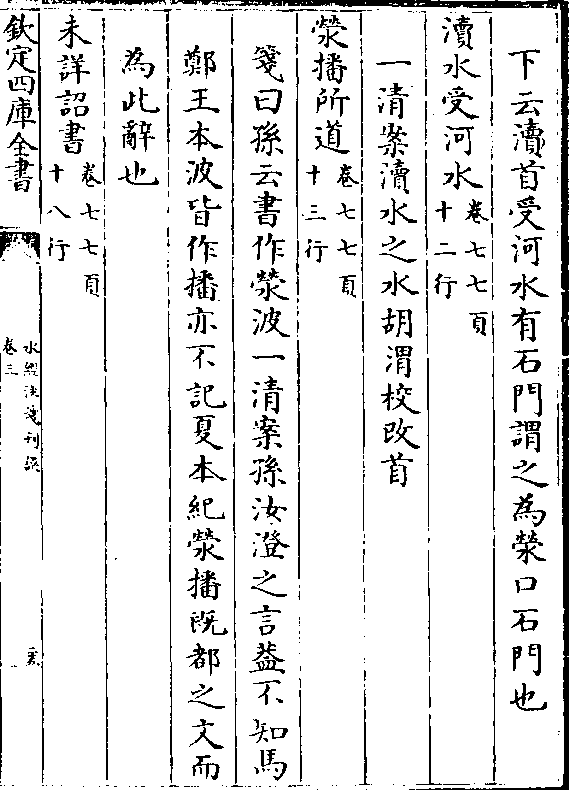 下云瀆首受河水有石門謂之為滎口石門也
瀆水受河水卷七七頁十二行
一清案瀆水之水胡渭校改首
滎播所道卷七七頁十三行
箋曰孫云書作滎波一清案孫汝澄之言葢不知馬
鄭王本波皆作播亦不記夏本紀滎播既都之文而
為此辭也
未詳詔書卷七七頁十八行
欽定四庫全書
水經注箋刊誤
卷三